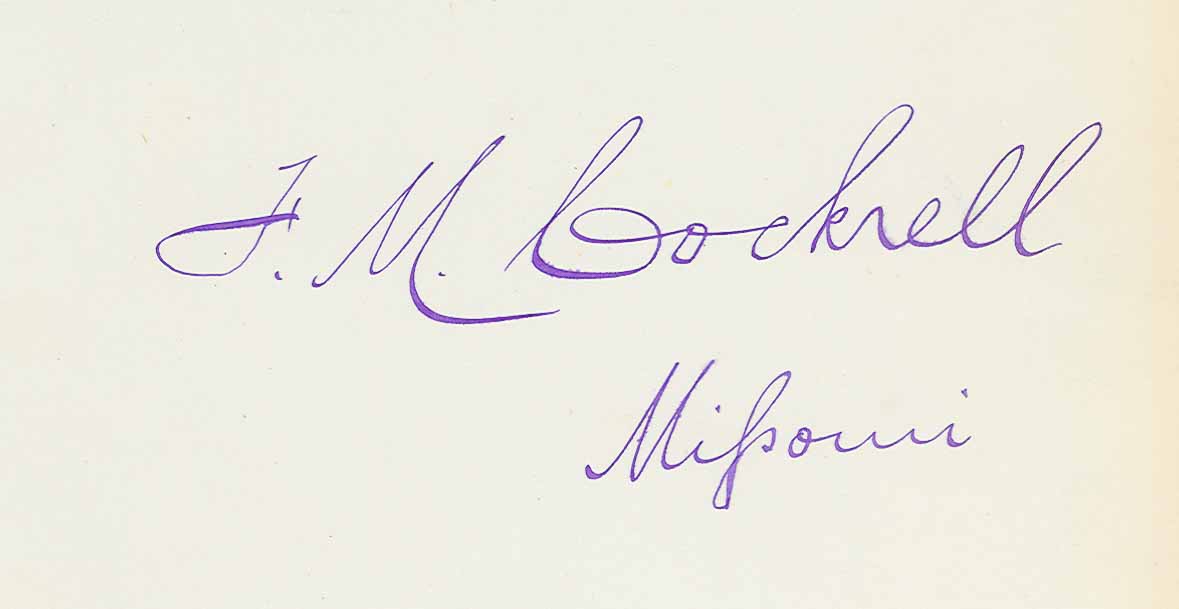 F. M. Cockrell
Miſsouri